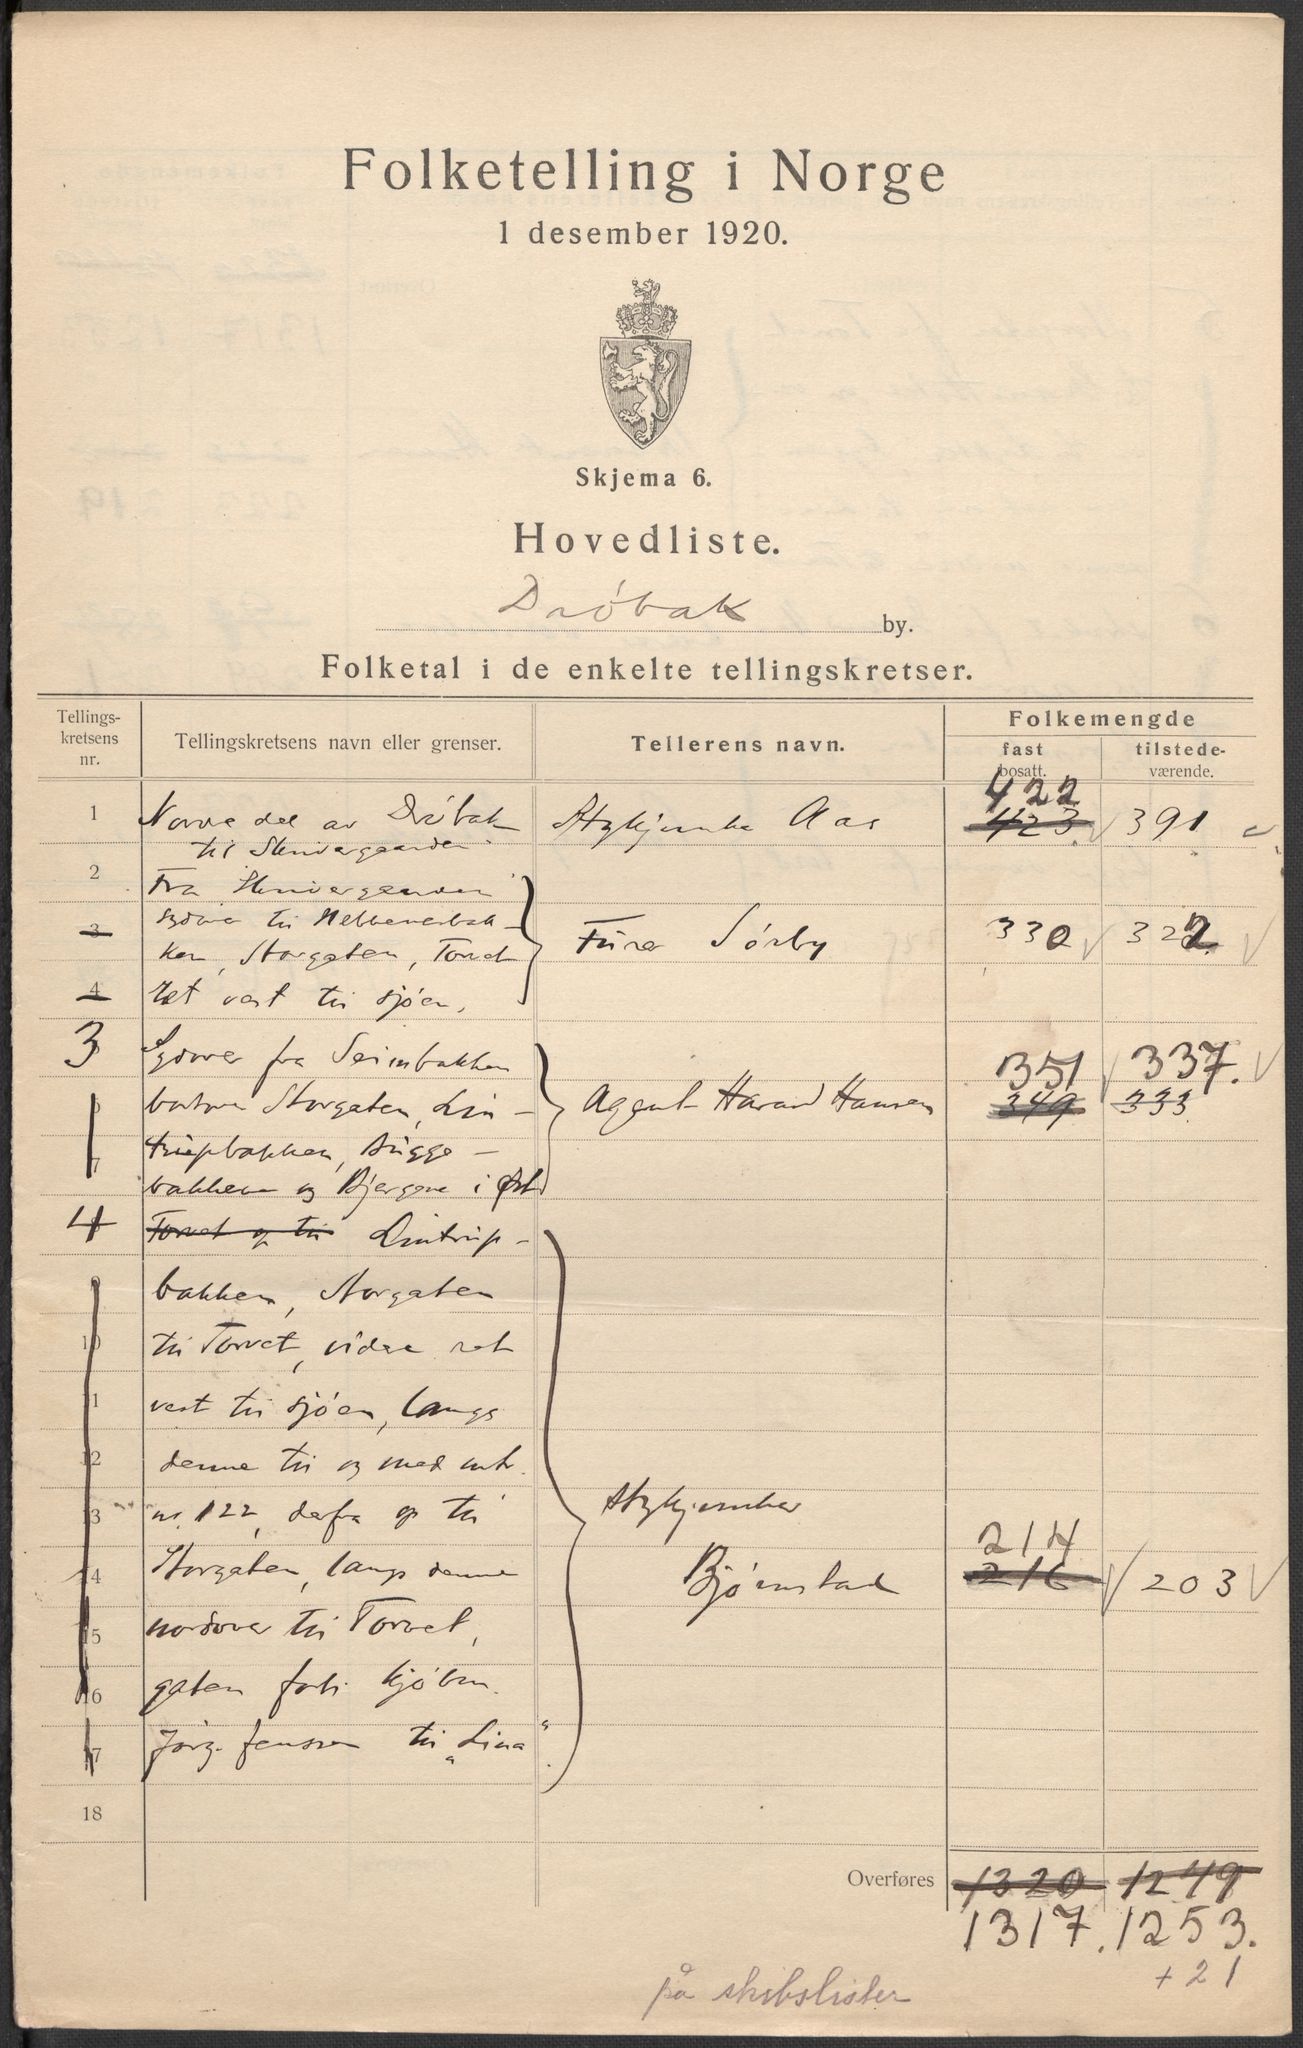 Folketelling i Norge
1 desember 1920.
Skjema 6.
Hovedliste.
Drøbak by.
Folketal i de enkelte tellingskretser.
Tellings-kretsens nr. Tellingskretsens navn eller grenser. Tellerens navn. Folkemengde
fast bosatt. tilstede-værende.
422
1 Nordre del av Drøbak Aas 423 391
til
2 Fra
3 til
ken, Storgaten, Torvet Sørby 330 322
4 ret vest til sjøen,
3 Sydover fra Seimbakken 351 337.
bortover Storgaten, Lin- Agent Harald Hansen 349 333
7 trupbakken, Bugge-
bakken og Bjergene i Øst
4 Torvet op til Lintrup-
bakken, Storgaten
10 til Torvet, videre ret
11 vest til sjøen, langs
12 denne til og med mtr.
13 nr. 122, derfra op til Stykjunker
214
14 Storgaten, langs denne Bjørnstad 216 203
15 nordover til Torvet,
16 gaten forbi kjøbm.
17 Jørg. Jensen til „Lina“.
18
Overføres 1320 1249
1317. 1253.
+ 21
på skibslister